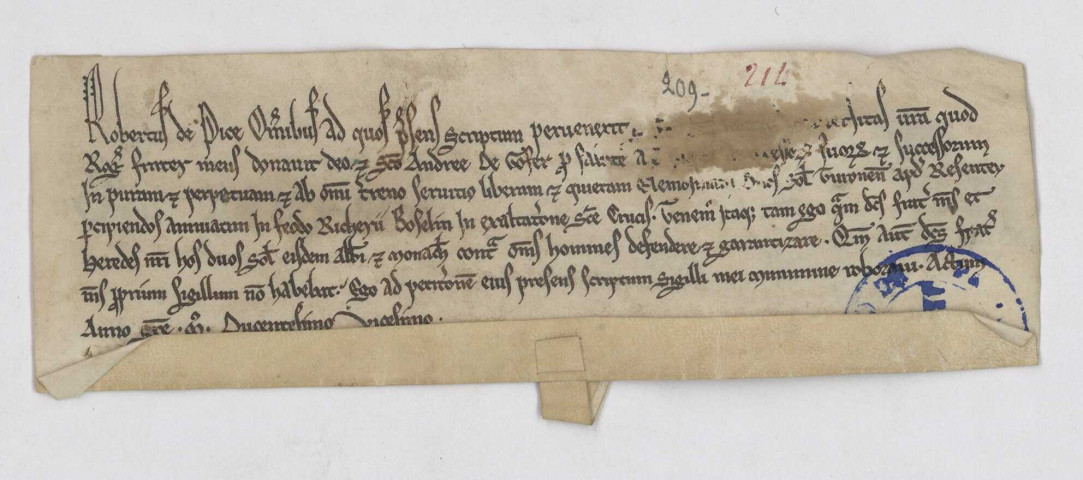 209-
214
Robertus de Pire Omnibus ad quos presens scriptum pervenerit universitas vestra quod
Rog' frater meus donavit deo & sco Andree de Gofer p salute a suor' & successorum
In puram & perpetuam & ab omi treno servitio liberam & quietam Elemosinam duos sol' Turonen' apd Resentey
pcipiendos Annuatim In feodo Richerii Boselin In exaltatione sce Crucis. Tenem' itaq; tam ego qam dcs frat' ms et
heredes nri hos duos sol' eisdem abb'i & monach' cont' oms homines defendere & garantizare. Qm aut' dcs frat'
ms pprium sigillum no habebat. Ego ad petitione eius presens scriptum sigilli mei munimine roboravi. Actum
Anno gre. M. Ducentesimo Vicesimo.